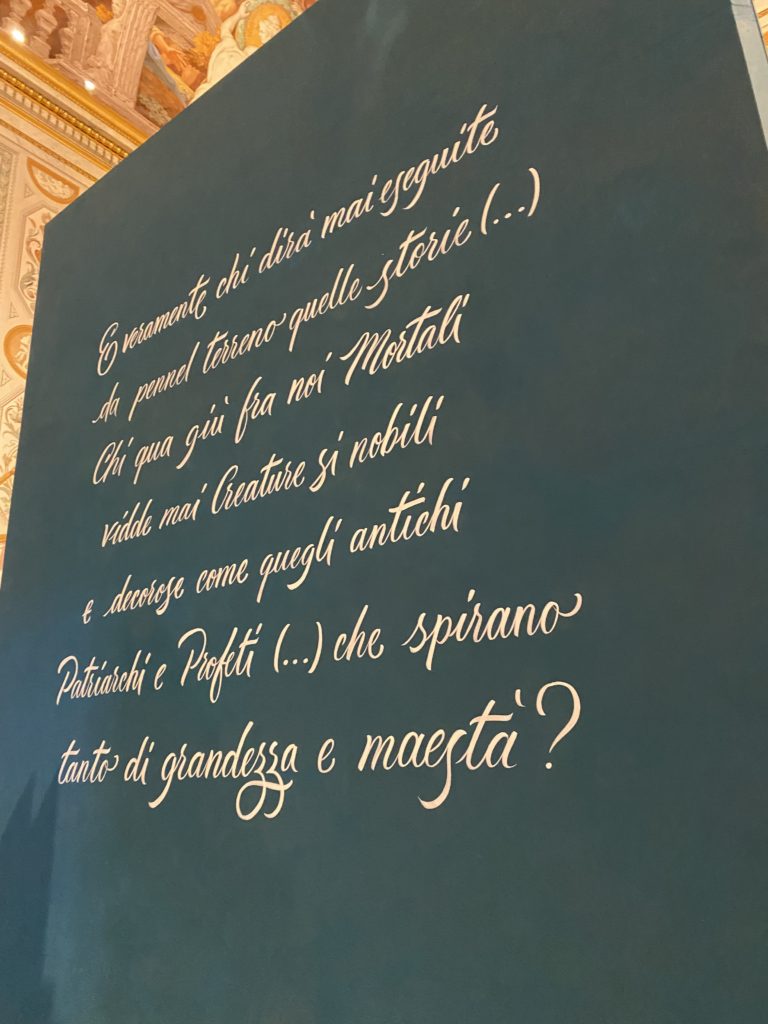 E veramente chi dirà mai eseguite
da pennel terreno quelle storie (...)
Chi qua giù fra noi Mortali
vidde mai Creature si nobili
e decorose come quegli antichi
Patriarchi e Profeti (...) che spirano
tanto di grandezza e maestà?